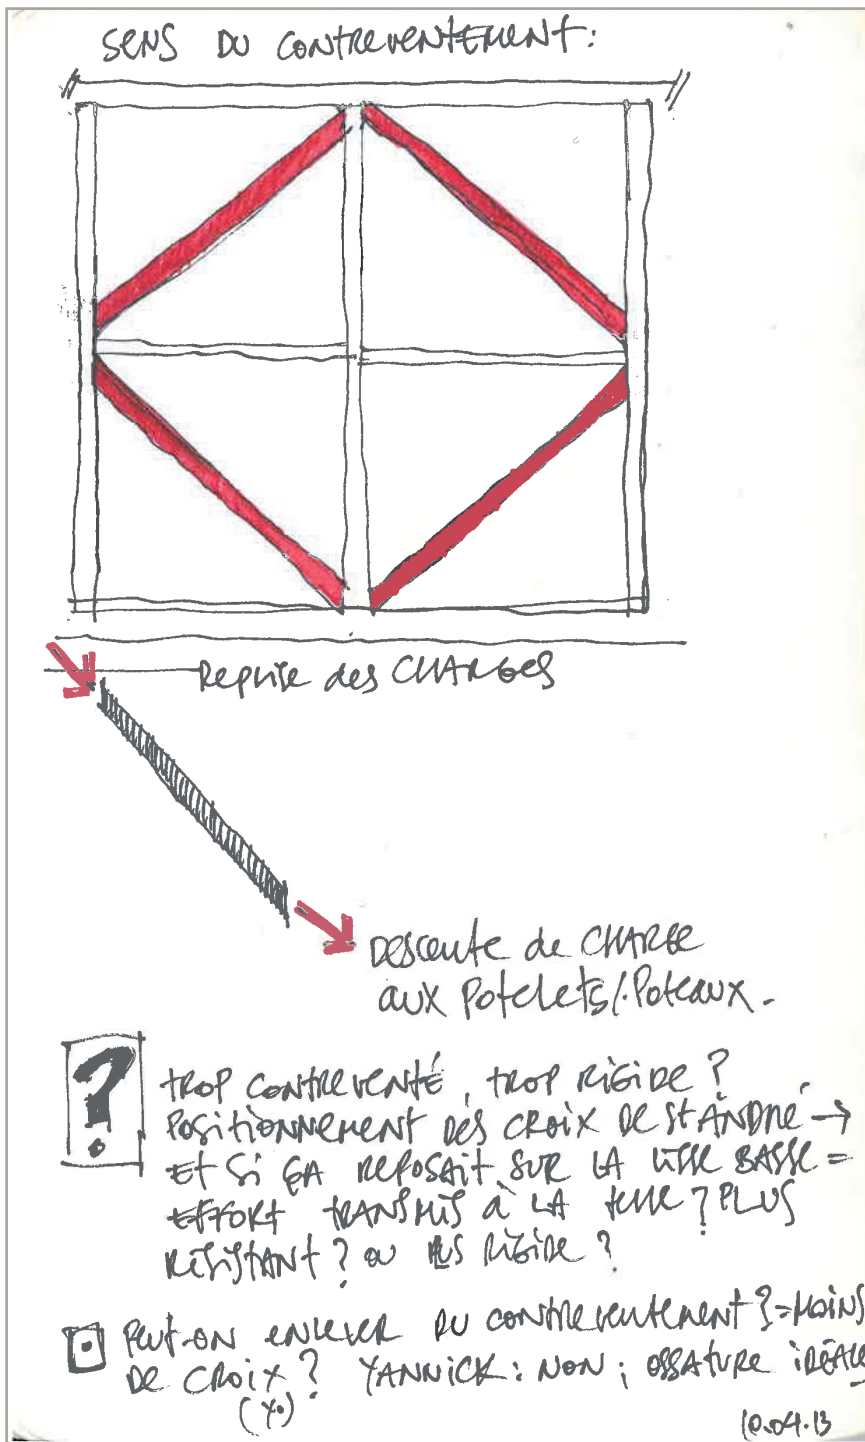 SENS DU CONTREVENTEMENT:
Reprise des CHARGES
Descente de CHARGE
aux Potelets/.Poteaux.
?
TROP CONTREVENTÉ, TROP RIGIDE?
POSITIONNEMENT DES CROIX DE ST ANDRÉ →
ET SI ÇA REPOSAIT SUR LA LISSE BASSE =
EFFORT TRANSMIS à LA TERRE? PLUS
RÉSISTANT? OU PLUS RIGIDE?
PEUT-ON ENLEVER DU CONTREVENTEMENT? = MOINS
DE CROIX? YANNICK: NON; OSSATURE IDÉALE
10.04.13